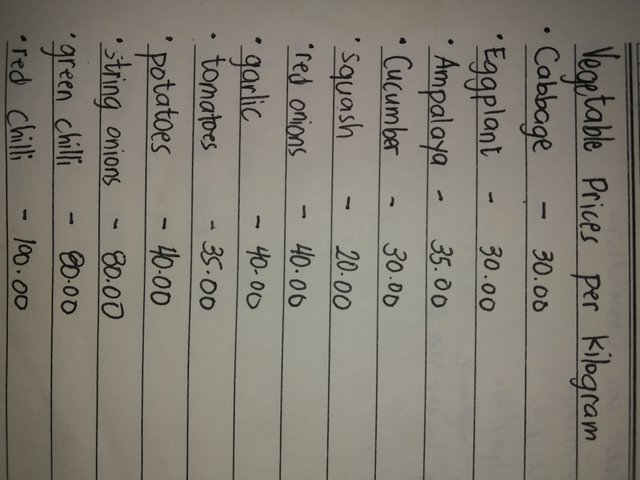 Vegetable Prices per Kilogram
• Cabbage - 30.00
• Eggplant - 30.00
• Ampalaya - 35.00
• Cucumber - 30.00
• Squash - 20.00
• red onions - 40.00
• garlic - 40.00
• tomatoes - 35.00
• potatoes - 40.00
• string onions - 80.00
• green chilli - 80.00
• red chilli - 100.00